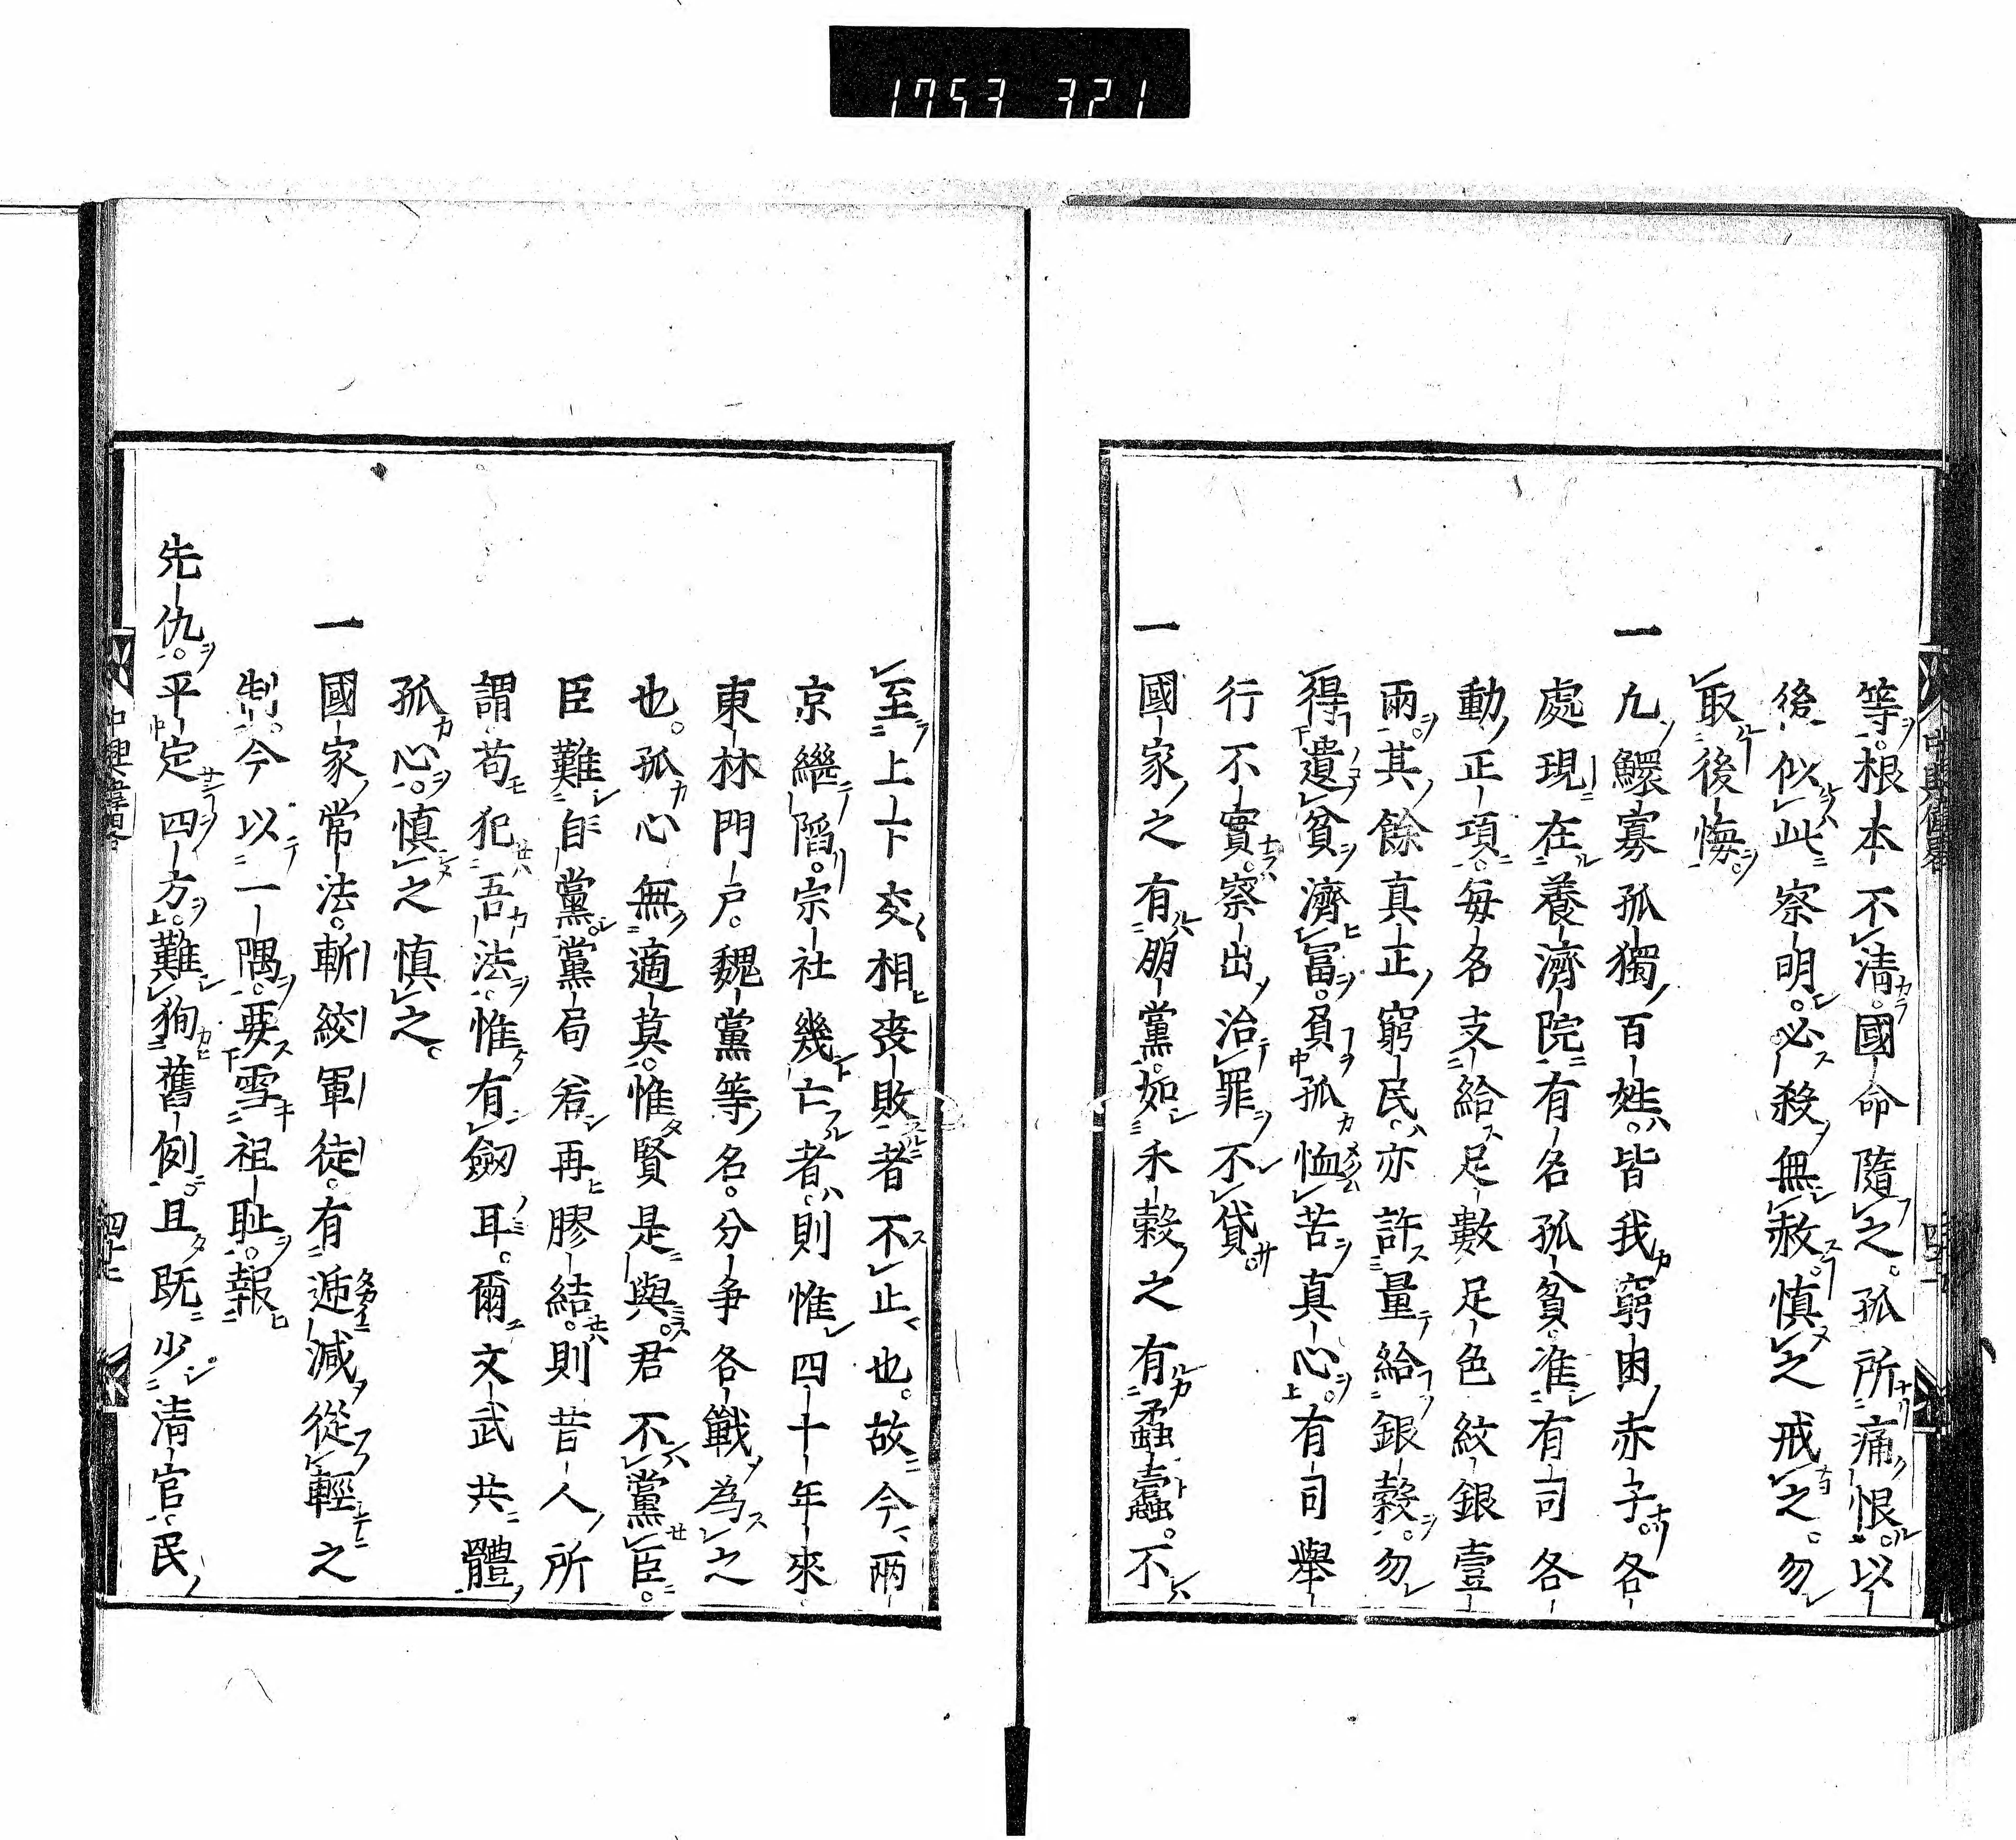 1753 321
等根本不清。國命隨之。孤所痛恨。以
後似此察明。必殺無赦。慎之戒之。勿
取後悔。
一凢鰥寡孤獨百姓。皆我窮困赤子。各
處現在養濟院有名孤貧。准有司各
動正項。每名支給足數足色紋銀壹
兩。其餘真正窮民。亦許量給銀穀。勿
得遺貧濟冨。負孤恤苦真心。有司舉
行不實。察出治罪不貸。
一國家之有朋黨。如禾穀之有蟊蠧。不
至上下交相喪敗者不止也。故今兩
京繼陷。宗社幾亡者。則惟四十年來
東林門戶。魏黨等名。分争各戰為之
也。孤心無適莫。惟賢是與。君不黨臣。
臣難自黨。黨局若再膠結。則昔人所
謂苟犯吾法。惟有劔耳。爾文武共體
孤心。慎之慎之。
一國家常法。斬絞軍徒。有遞減從輕之
制。今以一隅。要雪祖耻。報
先仇。平定四方。難狥舊例。且既少清官民
中興偉畧
四十七